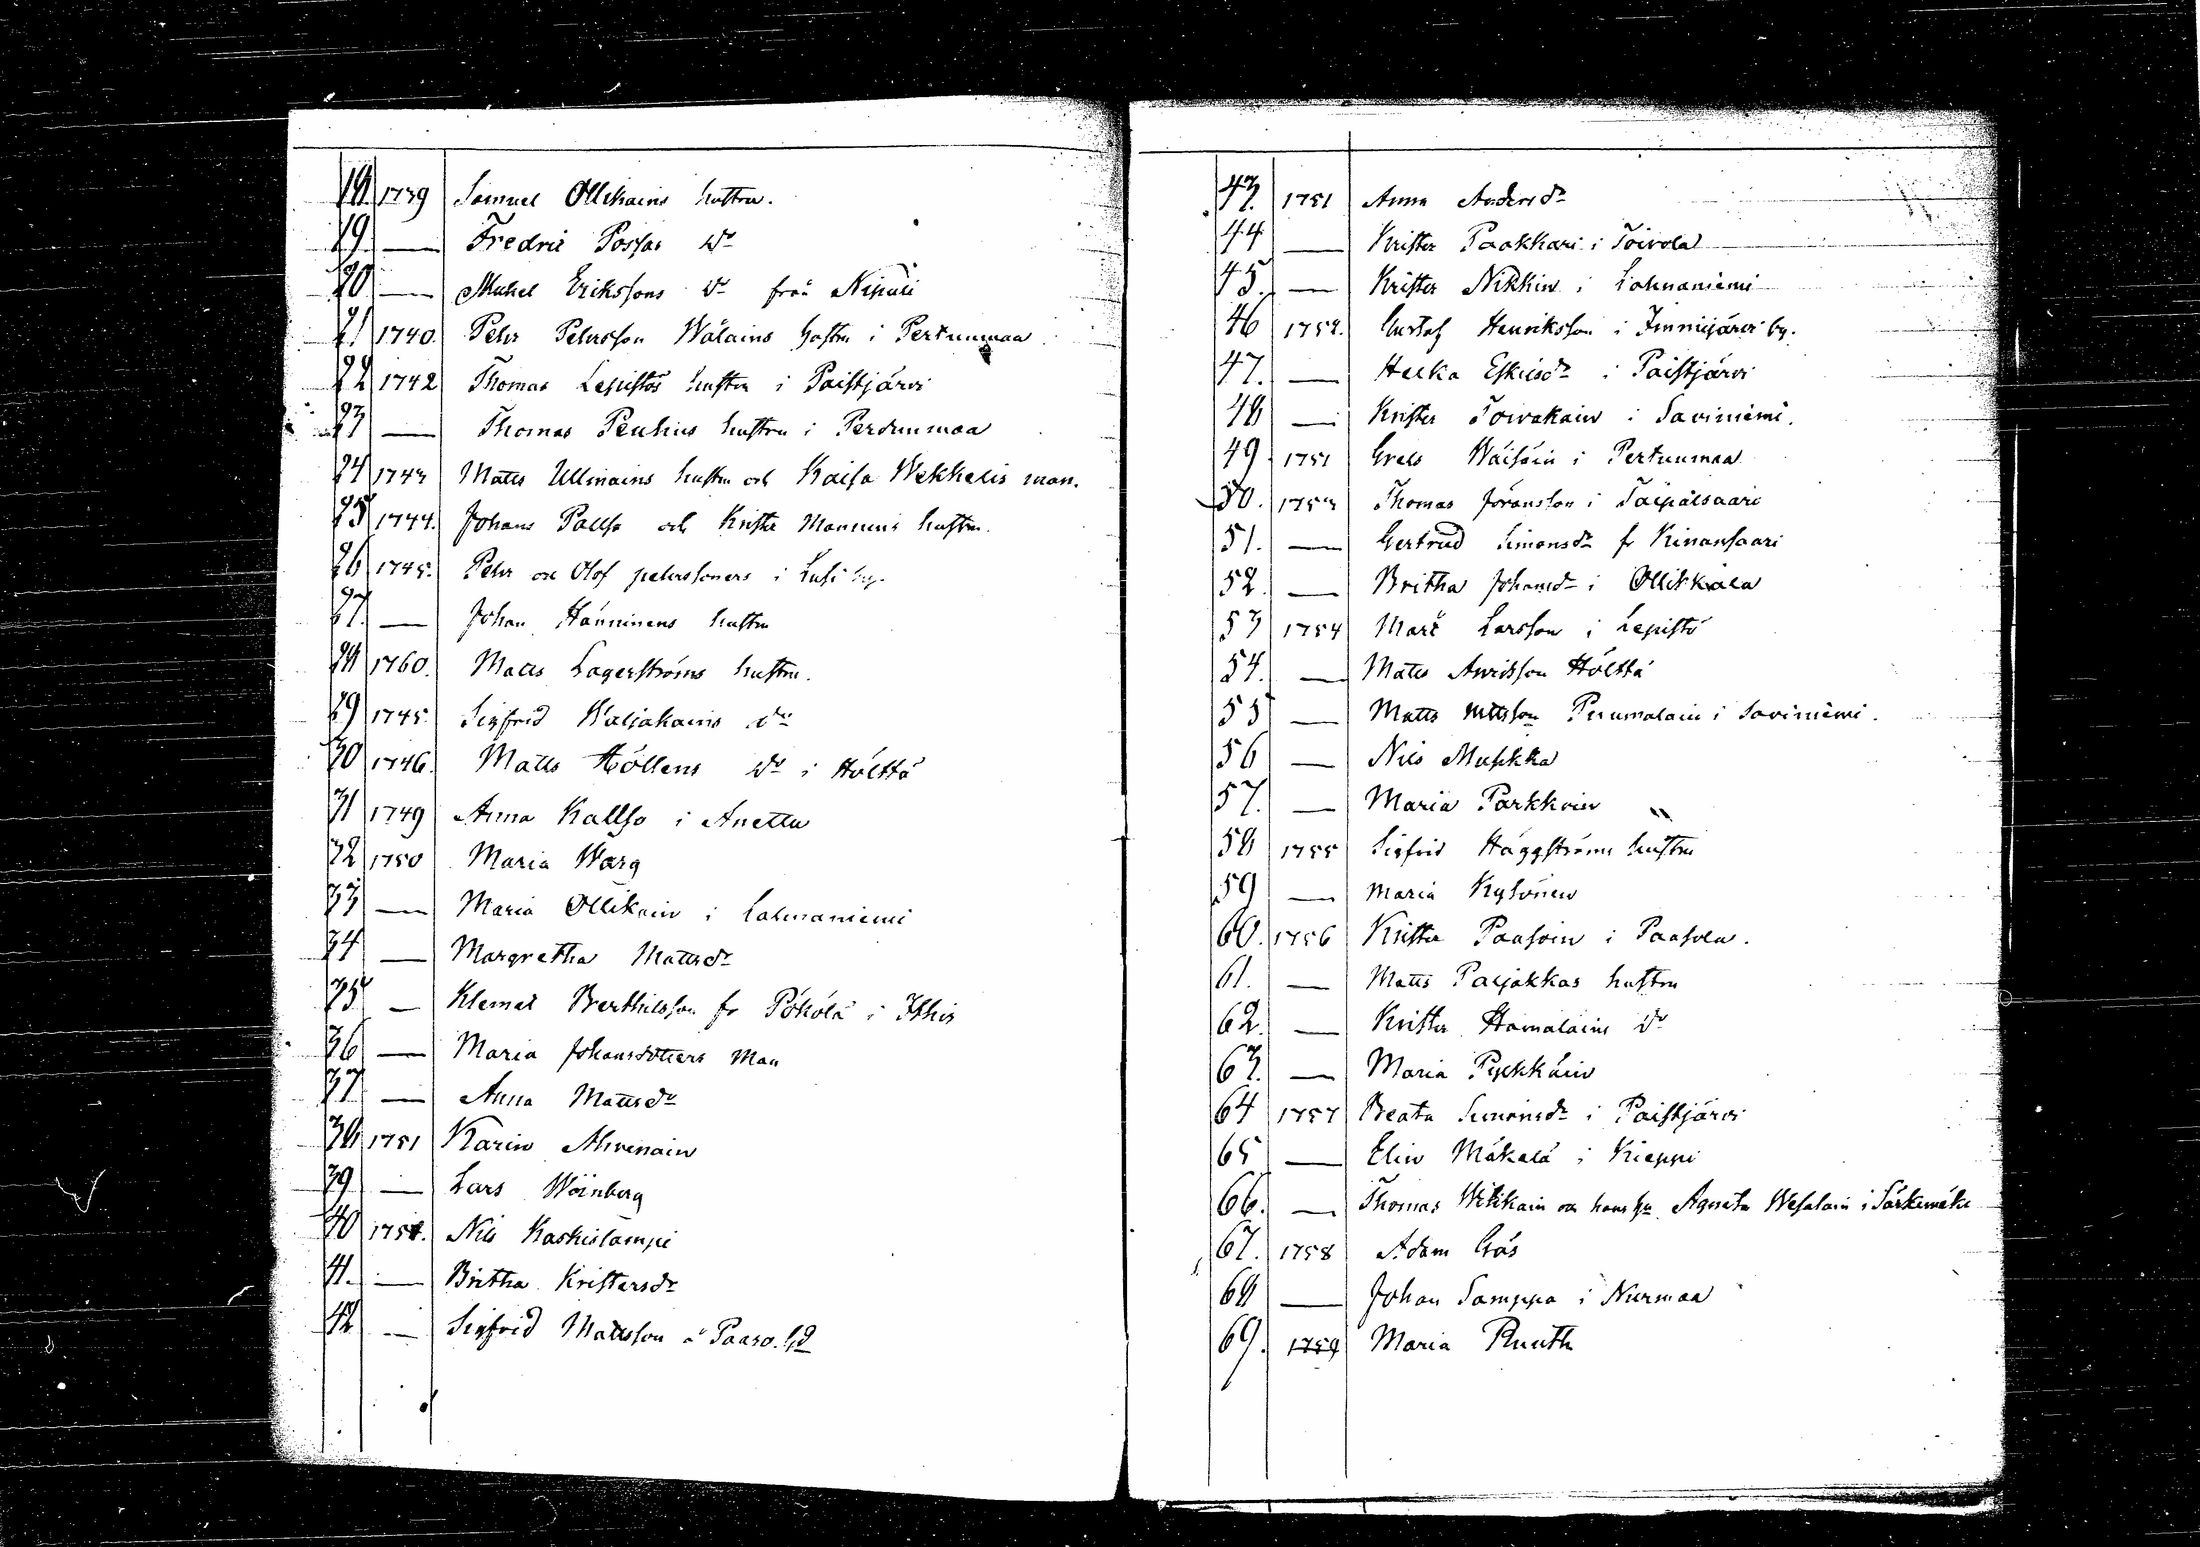 18. 1739 Samuel Ollikains hustru.
19. — Fredric Possas dr
20 — Mickel Erikssons dr från Nipuli
21 1740. Pehr Pehrsson Wälains hustru i Pertunmaa
22 1742 Thomas Lepistös hustru i Paistjärvi
23 — Thomas Penkins hustru i Perdunmaa
24 1743 Matts Ullmains hustru och Kaisa Wekkelis man.
25 1744. Johans Pallso och Krister Mannins hustru.
26 1745. Pehr och Olof pehrssoners i Lusi by.
27. — Johan Hänninens hustru
28 1760. Matts Lagerströms hustru.
29 1745 Sigfrid Waljakains dr
30 1746. Matts Höltens dr i Hölttä
31 1749 Anna Kallso i Anetta
32 1750 Maria Warg
33 — Maria Ollikain i Lahnaniemi
34 — Margretha Mattsdr
35 — Klemet Berthilsson fr Pökölä i Ithis
36 — Maria Johansdotters Man
37 — Anna Mattsdr
38 1751 Karin Ahvenain
39 — Lars Wöinberg
40 1751. Nils Kaskislampi
41. — Britha Kristersdr
42 — Sigfrid Mattsson å Paaso. gd
43. 1751 Anna Andersdr
44 — Krister Paakkari i Toivola
45. — Krister Nikkin i Lahnaniemi
46 1752. Gustaf Henriksson i Imnijärvi by.
47. — Helka Eskilsdr i Paistjärvi
48 — Krister Toivakain i Saviniemi.
49 1751 Grels Wäisäin i Pertunmaa
50. 1753 Thomas Jöransson i Taipalsaari
51. — Gertrud Simonsdr fr Kinansaari
52. — Britha Johansdr i Ollikkala
53 1754 Mart Larsson i Lepistö
54. — Matts Anridsson Hölttä
55 — Matts Mattsson Pinmalain i Saviniemi.
56 — Nils Muhkka
57. — Maria Parkkoin
58 1755 Sigfrid Häggströms hustru
59 — Maria Kylönen
60. 1756 Krister Paasoin i Paasola.
61. — Matts Paljakkas hustru
62. — Krister Hämäläins dr
63. — Maria Pykkäin
64 1757 Beata Simonsdr i Paistjärvi
65 — Elin Mäkelä i Kieppi
66. — Thomas Wikkain och hans hu Agneta Wesalain i Särkemäki
67. 1758 Adam Gås
68 — Johan Samppa i Nurmaa
69. 1759 Maria Ruuth